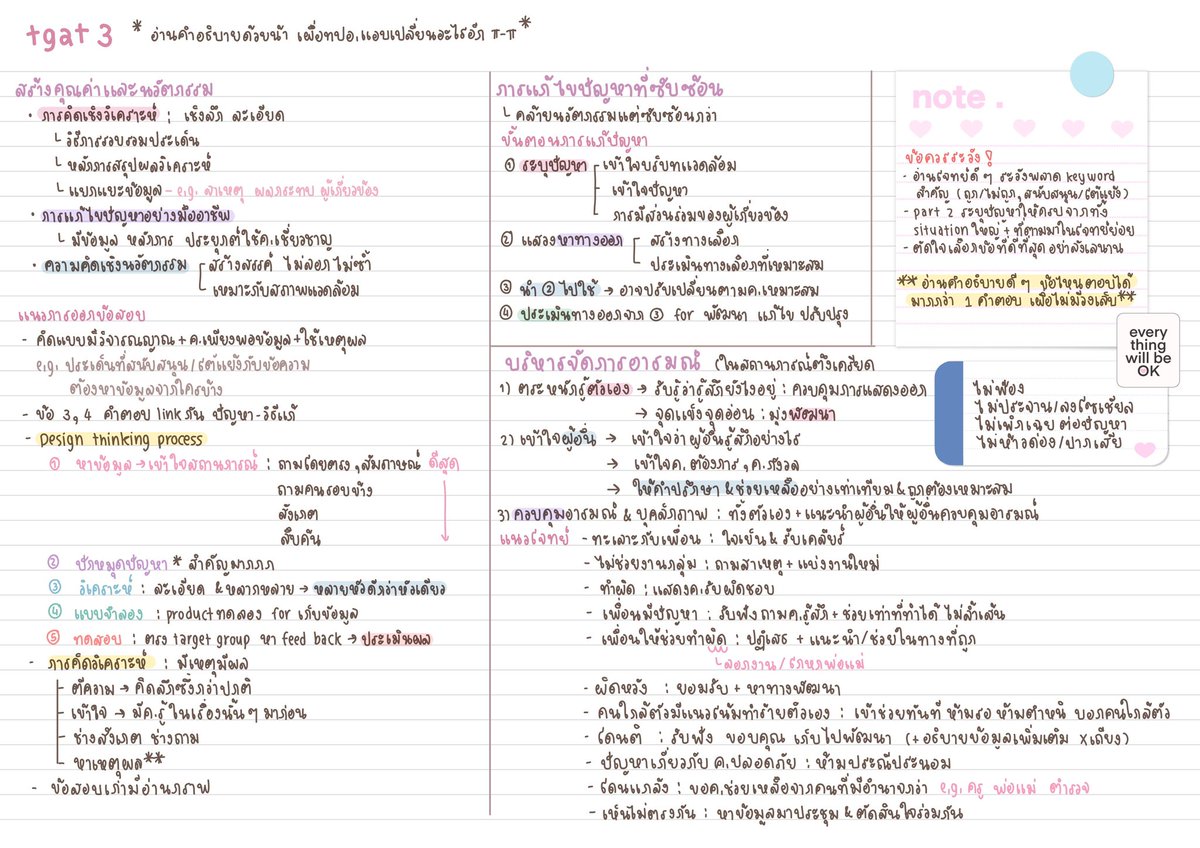 tgat 3 * อ่านคำอธิบายด้วยน้า เผื่อทปอ.แอบเปลี่ยนอะไรอีก π-π *
สร้างคุณค่าและนวัตกรรม
• การคิดเชิงวิเคราะห์ : เชิงลึก ละเอียด
└ วิธีการรวบรวมประเด็น
└ หลักการสรุปผลวิเคราะห์
└ แยกแยะข้อมูล - e.g. สาเหตุ ผลกระทบ ผู้เกี่ยวข้อง
• การแก้ไขปัญหาอย่างมืออาชีพ
└ มีข้อมูล หลักการ ประยุกต์ใช้ค.เชี่ยวชาญ
• ความคิดเชิงนวัตกรรม สร้างสรรค์ ไม่ลอก ไม่ซ้ำ
เหมาะกับสภาพแวดล้อม
แนวการออกข้อสอบ
- คิดแบบมีวิจารณญาณ + ค.เพียงพอข้อมูล + ใช้เหตุผล
e.g. ประเด็นที่สนับสนุน/โต้แย้งกับข้อความ
ต้องหาข้อมูลจากใครบ้าง
- ข้อ 3,4 คำตอบ link กัน ปัญหา-วิธีแก้
- Design thinking process
① หาข้อมูล → เข้าใจสถานการณ์ : ถามโดยตรง, สัมภาษณ์ ดีสุด
ถามคนรอบข้าง
สังเกต
สืบค้น
② ปักหมุดปัญหา * สำคัญมากกก
③ วิเคราะห์ : ละเอียด & หลากหลาย → หลายหัวดีกว่าหัวเดียว
④ แบบจำลอง : product ทดลอง for เก็บข้อมูล
⑤ ทดสอบ : ตรง target group หา feed back → ประเมินผล
- การคิดวิเคราะห์ : มีเหตุมีผล
ตีความ → คิดลึกซึ้งกว่าปกติ
เข้าใจ → มีค.รู้ ในเรื่องนั้น ๆ มาก่อน
ช่างสังเกต ช่างถาม
หาเหตุผล**
- ข้อสอบเก่ามีอ่านกราฟ
การแก้ไขปัญหาที่ซับซ้อน
└ คล้ายนวัตกรรมแต่ซับซ้อนกว่า
ขั้นตอนการแก้ปัญหา
① ระบุปัญหา เข้าใจบริบทแวดล้อม
เข้าใจปัญหา
การมีส่วนร่วมของผู้เกี่ยวข้อง
② แสวงหาทางออก สร้างทางเลือก
ประเมินทางเลือกที่เหมาะสม
③ นำ ② ไปใช้ → อาจปรับเปลี่ยนตามค.เหมาะสม
④ ประเมินทางออกจาก ③ for พัฒนา แก้ไข ปรับปรุง
บริหารจัดการอารมณ์ (ในสถานการณ์ตึงเครียด
1) ตระหนักรู้ตัวเอง → รับรู้ว่ารู้สึกยังไงอยู่ : ควบคุมการแสดงออก
→ จุดแข็งจุดอ่อน : มุ่งพัฒนา
2) เข้าใจผู้อื่น → เข้าใจว่า ผู้อื่นรู้สึกอย่างไร
→ เข้าใจค.ต้องการ, ค.กังวล
→ ให้คำปรึกษา & ช่วยเหลืออย่างเท่าเทียม & ถูกต้องเหมาะสม
3) ควบคุมอารมณ์ & บุคลิกภาพ : ทั้งตัวเอง + แนะนำผู้อื่นให้ผู้อื่นควบคุมอารมณ์
แนวโจทย์ - ทะเลาะกับเพื่อน : ใจเย็น & รีบเคลียร์
- ไม่ช่วยงานกลุ่ม : ถามสาเหตุ + แบ่งงานใหม่
- ทำผิด : แสดงค.รับผิดชอบ
- เพื่อนมีปัญหา : รับฟัง ถามค.รู้สึก + ช่วยเท่าที่ทำได้ ไม่ล้ำเส้น
- เพื่อนให้ช่วยทำผิด : ปฏิเสธ + แนะนำ/ช่วยในทางที่ถูก
└ ลอกงาน/โกหกพ่อแม่
- ผิดหวัง : ยอมรับ + หาทางพัฒนา
- คนใกล้ตัวมีแนวโน้มทำร้ายตัวเอง : เข้าช่วยทันที ห้ามรอ ห้ามตำหนิ บอกคนใกล้ตัว
- โดนติ : รับฟัง ขอบคุณ เก็บไปพัฒนา (+อธิบายข้อมูลเพิ่มเติม Xเถียง)
- ปัญหาเกี่ยวกับ ค.ปลอดภัย : ห้ามประณีประนอม
- โดนแกล้ง : ขอค.ช่วยเหลือจากคนที่มีอำนาจกว่า e.g. ครู พ่อแม่ ตำรวจ
- เห็นไม่ตรงกัน : หาข้อมูลมาประชุม & ตัดสินใจร่วมกัน
note .
ข้อควรระวัง !
- อ่านโจทย์ดี ๆ ระวังพลาด keyword
สำคัญ (ถูก/ไม่ถูก, สนับสนุน/โต้แย้ง)
- part 2 ระบุปัญหาให้ครบจากทั้ง
situation ใหญ่ + ที่ตามมาในโจทย์ย่อย
- ตัดใจเลือกข้อที่ดีที่สุด อย่าลังเลนาน
** อ่านคำอธิบายดี ๆ ข้อไหนตอบได้
มากกว่า 1 คำตอบ เผื่อไม่มีวงเล็บ**
every
thing
will be
OK
ไม่ฟ้อง
ไม่ประจาน/ลงโซเชียล
ไม่เพิกเฉย ต่อปัญหา
ไม่ห้าวด่อง/ปากเสีย